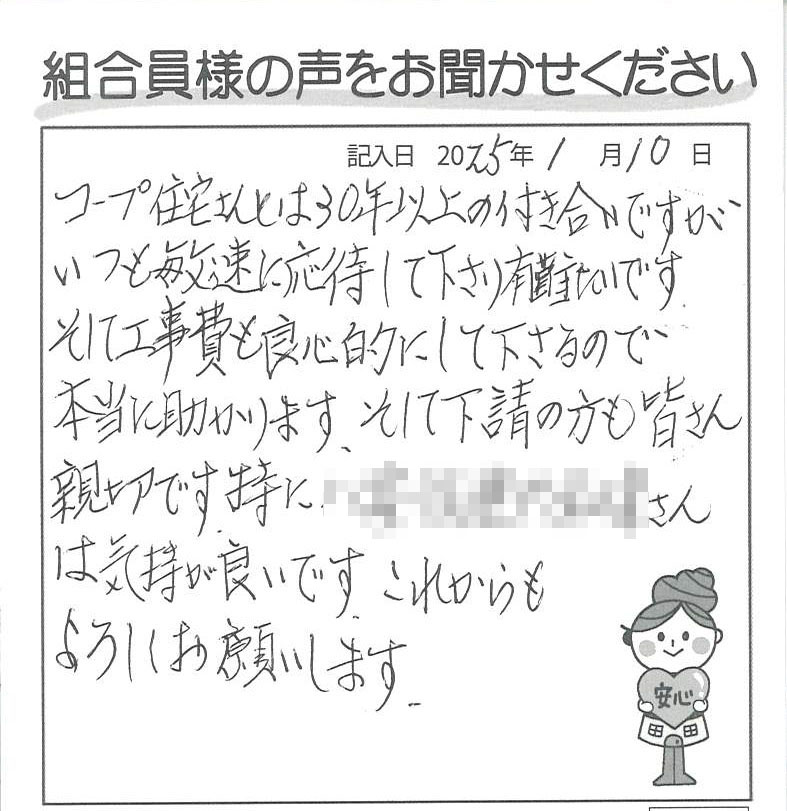 組合員様の声をお聞かせください
記入日 2025年 1 月 10 日
コープ住宅さんとは30年以上の付き合いですが
いつも敏速に応待して下さり有難たいです
そして工事費も良心的にして下さるので
本当に助かります、そして下請の方も皆さん
親切です。特に さん
は気持が良いです。これからも
よろしくお願いします。
安心